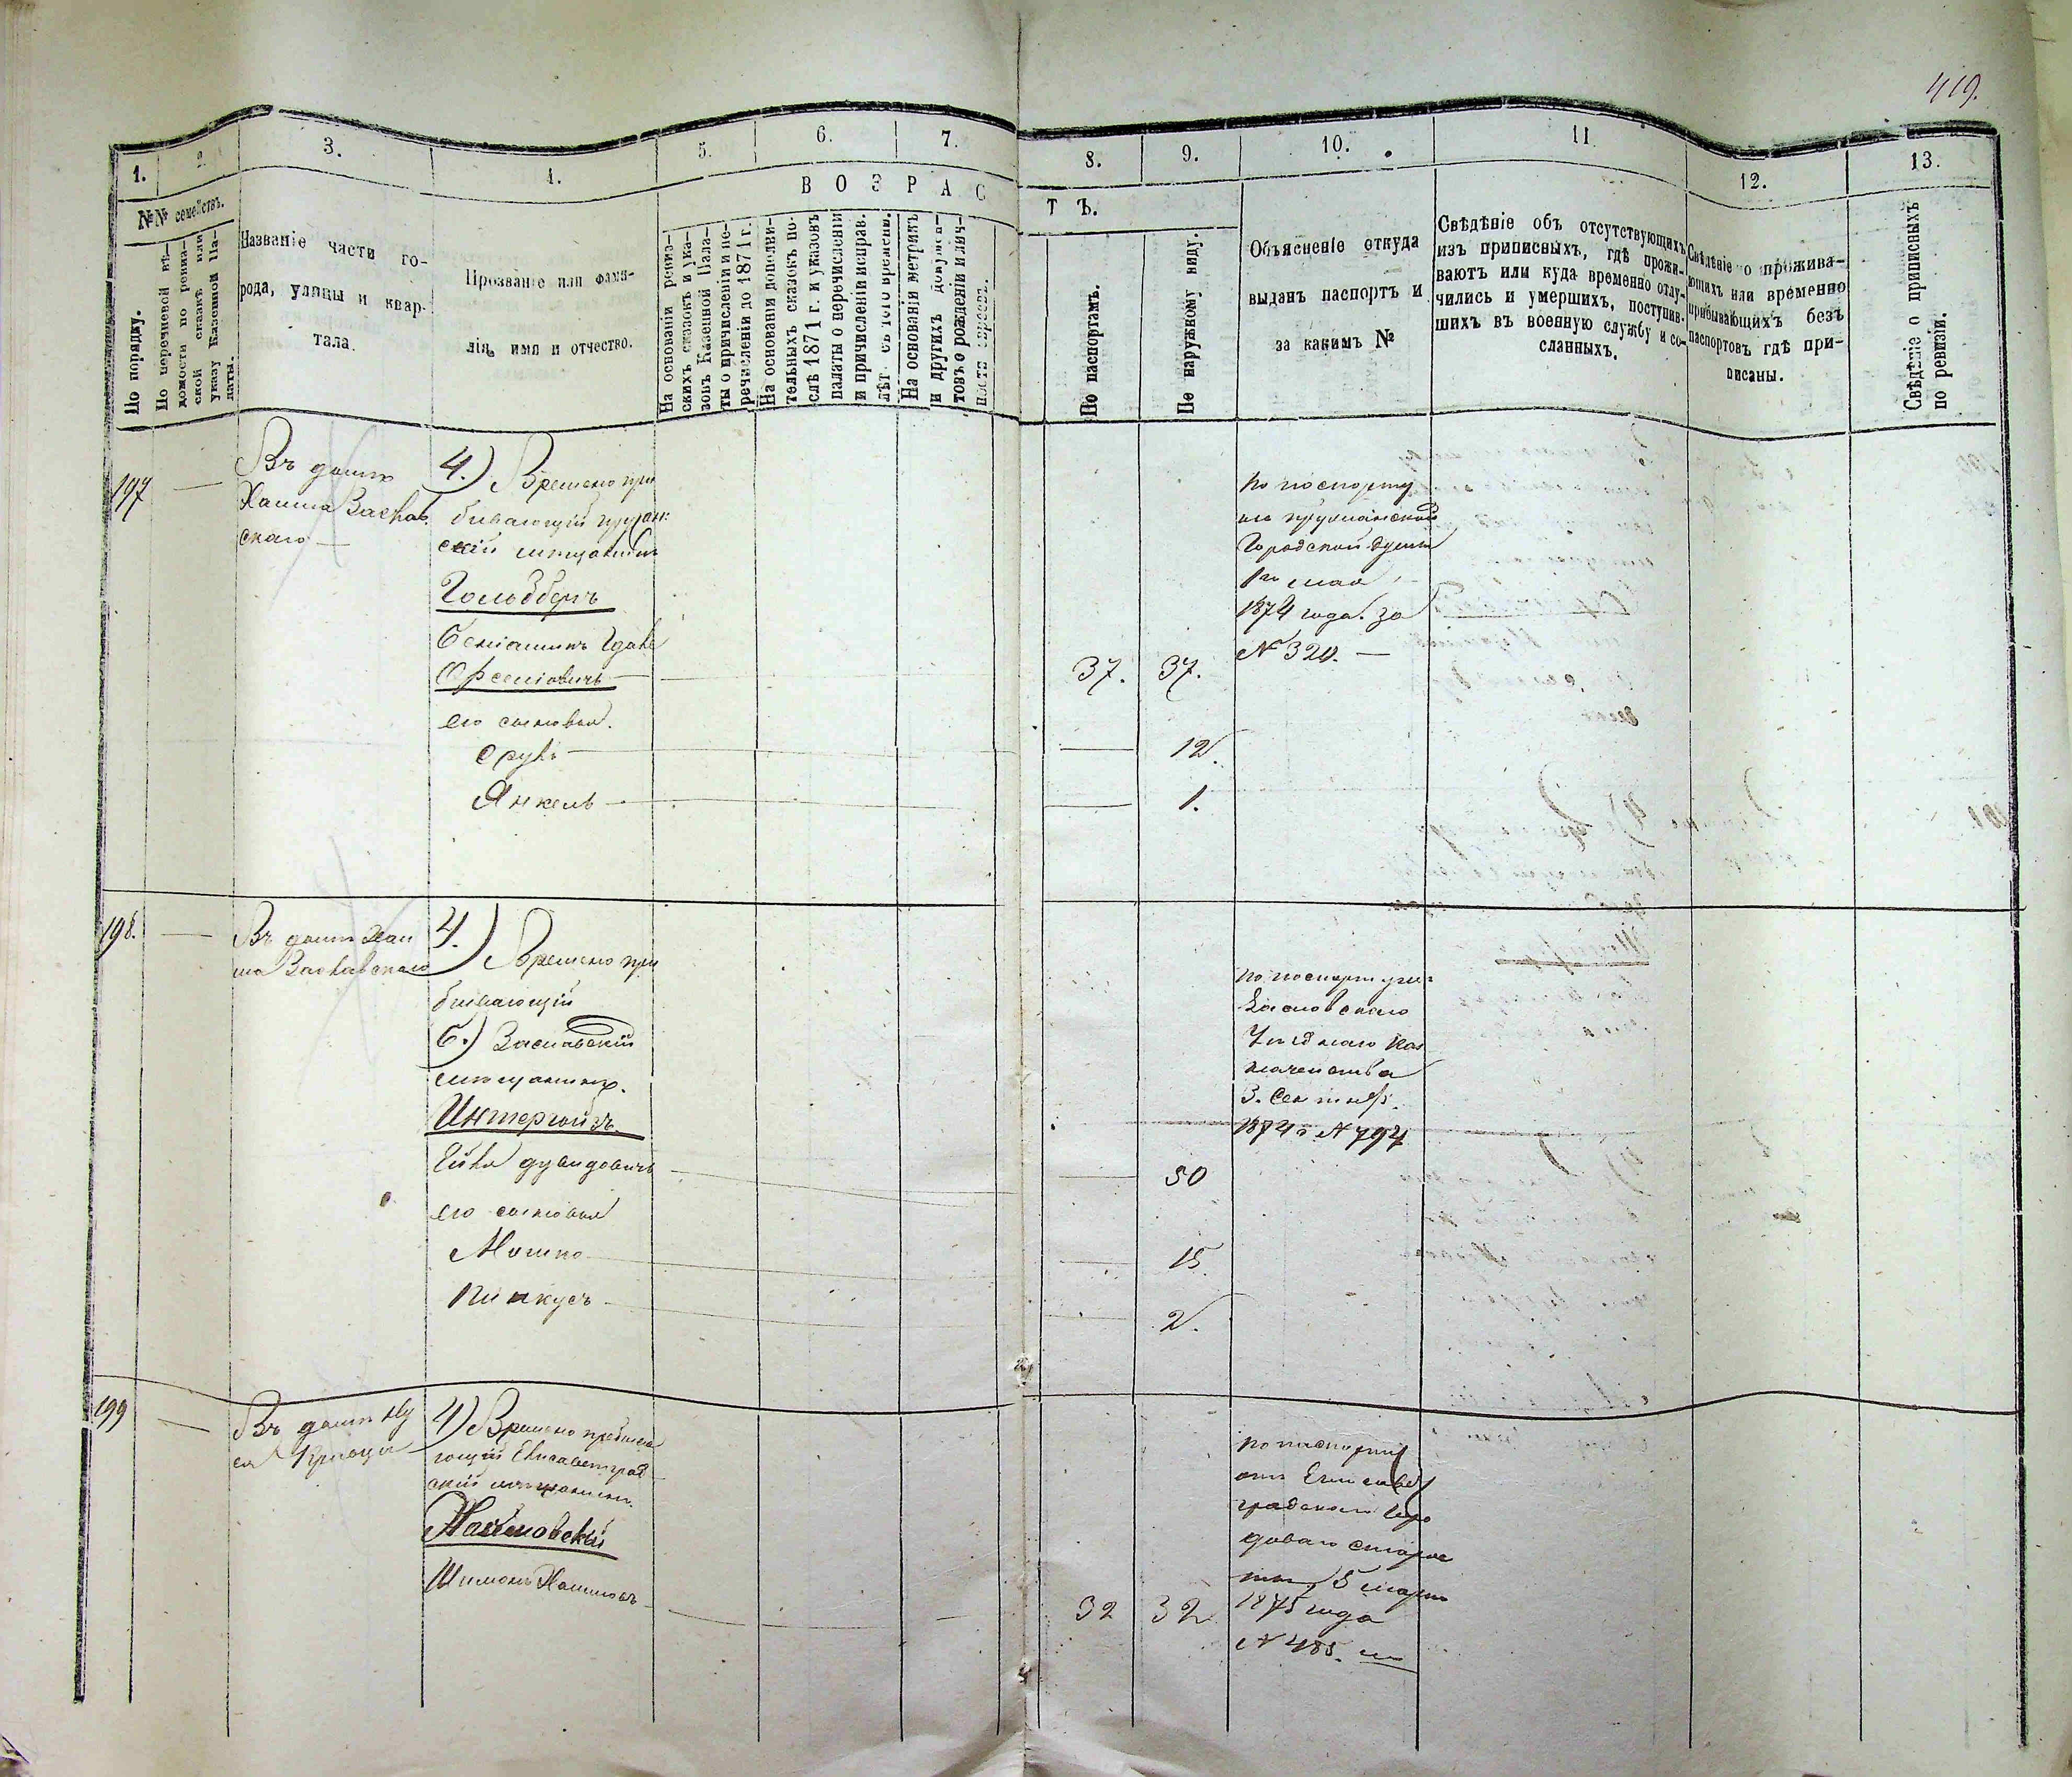 419.
1.
2
3.
4.
5.
6.
7.
8.
9.
10.
11.
12.
13.
№№ семействъ.
По порядку.
По перечневой вѣ-
домости по ревиз-
ской сказкѣ или
указу Казенной Па-
латы.
Названіе части го-
рода, улицы и квар-
тала.
Прозваніе или фами-
лія, имя и отчество.
ВОЗРАС
ТЪ.
На основаніи ревиз-
скихъ сказокъ и ука-
зовъ Казенной Пала-
ты о причисленіи и пе-
речисленіи до 1871 г.
На основаніи дополни-
тельныхъ сказокъ по-
слѣ 1871 г. и указовъ
палаты о перечисленіи
и причисленіи исправ.
лѣт. съ того времени.
На основаніи метрикъ
и другихъ докумен-
товъ о рожденіи и лич-
По паспортамъ.
По наружному виду.
Объясненіе откуда
выданъ паспортъ и
за какимъ №
Свѣдѣніе объ отсутствующихъ
изъ приписныхъ, гдѣ прожи-
ваютъ или куда временно отлу-
чились и умершихъ, поступив-
шихъ въ военную службу и со-
сланныхъ.
Свѣдѣніе о прожива-
ющихъ или временно
прибывающихъ безъ
паспортовъ гдѣ при-
писаны.
Свѣдѣніе о приписныхъ
по ревизіи.
197
Въ домѣ
Хаима Заславс
скаго
4.) Времено при
бывающій
скій мѣщанинъ
Гольдбергъ
Беніаминъ
его сыновья.
Сруль
Янкель
37. 37.
12.
1.
по паспорту
Городской думы
1го мая
1874 года. за
№ 320.
198.
Въ домѣ Хаи
ма Заславскаго
4.) Времено при
бывающій
Б.) Заславскій
мѣщанинъ.
Интергойзъ
Дувидовичъ
его сыновья
Мошко
Пинкусъ
50
15.
2.
по паспорту
Заславскаго
Уѣзднаго Каз
начейства
3. Сентяб.
1874 г. № 794
199
Въ домѣ
4) Времено пребыва
ющій Елисаветград
скій мѣщанинъ.
Шимонъ Хаимовъ
32 32
по паспорту
отъ Елисавет
градскаго
5 марта
1875 года
№ 485.